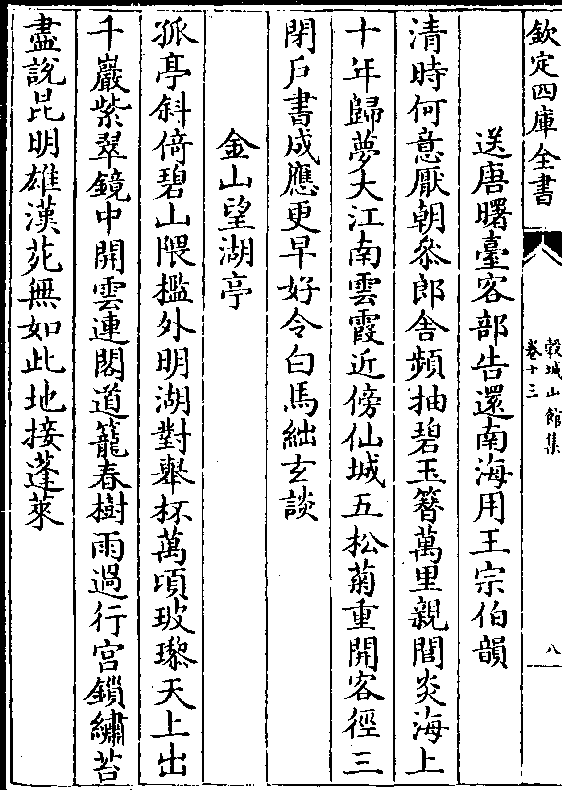 欽定四庫全書
穀城山館集
卷十三
八
送唐曙臺客部告還南海用王宗伯韻
清時何意厭朝參郎舎頻抽碧玉簪萬里親閭炎海上
十年歸夢大江南雲霞近傍仙城五松菊重開客徑三
閉戸書成應更早好令白馬絀玄談
金山望湖亭
孤亭斜倚碧山隈檻外明湖對舉杯萬頃玻瓈天上出
千巖紫翠鏡中開雲連閣道籠春樹雨過行宮鎖繡苔
盡說昆明雄漢苑無如此地接蓬萊